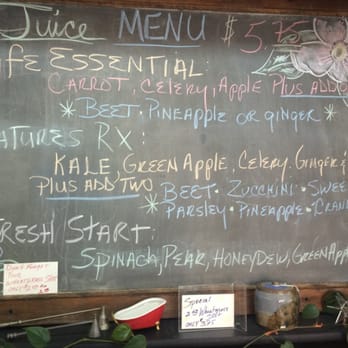 Juice MENU $5.75
ife Essential:
Carrot, Celery, Apple Plus Add
* Beet, Pineapple or Ginger *
atures Rx:
Kale, Green Apple, Celery, Ginger &
Plus Add Two
Beet · Zucchini · Swee
* Parsley · Pineapple · Cran
resh Start:
Spinach, Pear, Honeydew, Green App
Don't Forget
Your
Wheatgrass Shot
Special
2 oz Wheatgrass